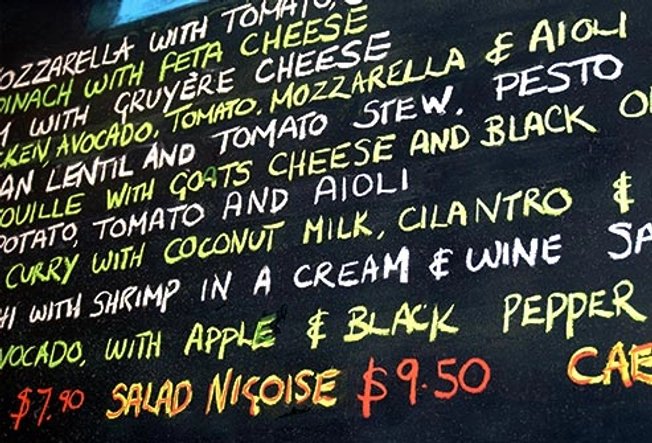 MOZZARELLA WITH TOMATO,
SPINACH WITH FETA CHEESE
WITH GRUYÈRE CHEESE
CHICKEN, AVOCADO, TOMATO, MOZZARELLA & AIOLI
LENTIL AND TOMATO STEW, PESTO
WITH GOATS CHEESE AND BLACK
POTATO, TOMATO AND AIOLI
CURRY WITH COCONUT MILK, CILANTRO &
WITH SHRIMP IN A CREAM & WINE
AVOCADO, WITH APPLE & BLACK PEPPER
$7.90 SALAD NIÇOISE $9.50